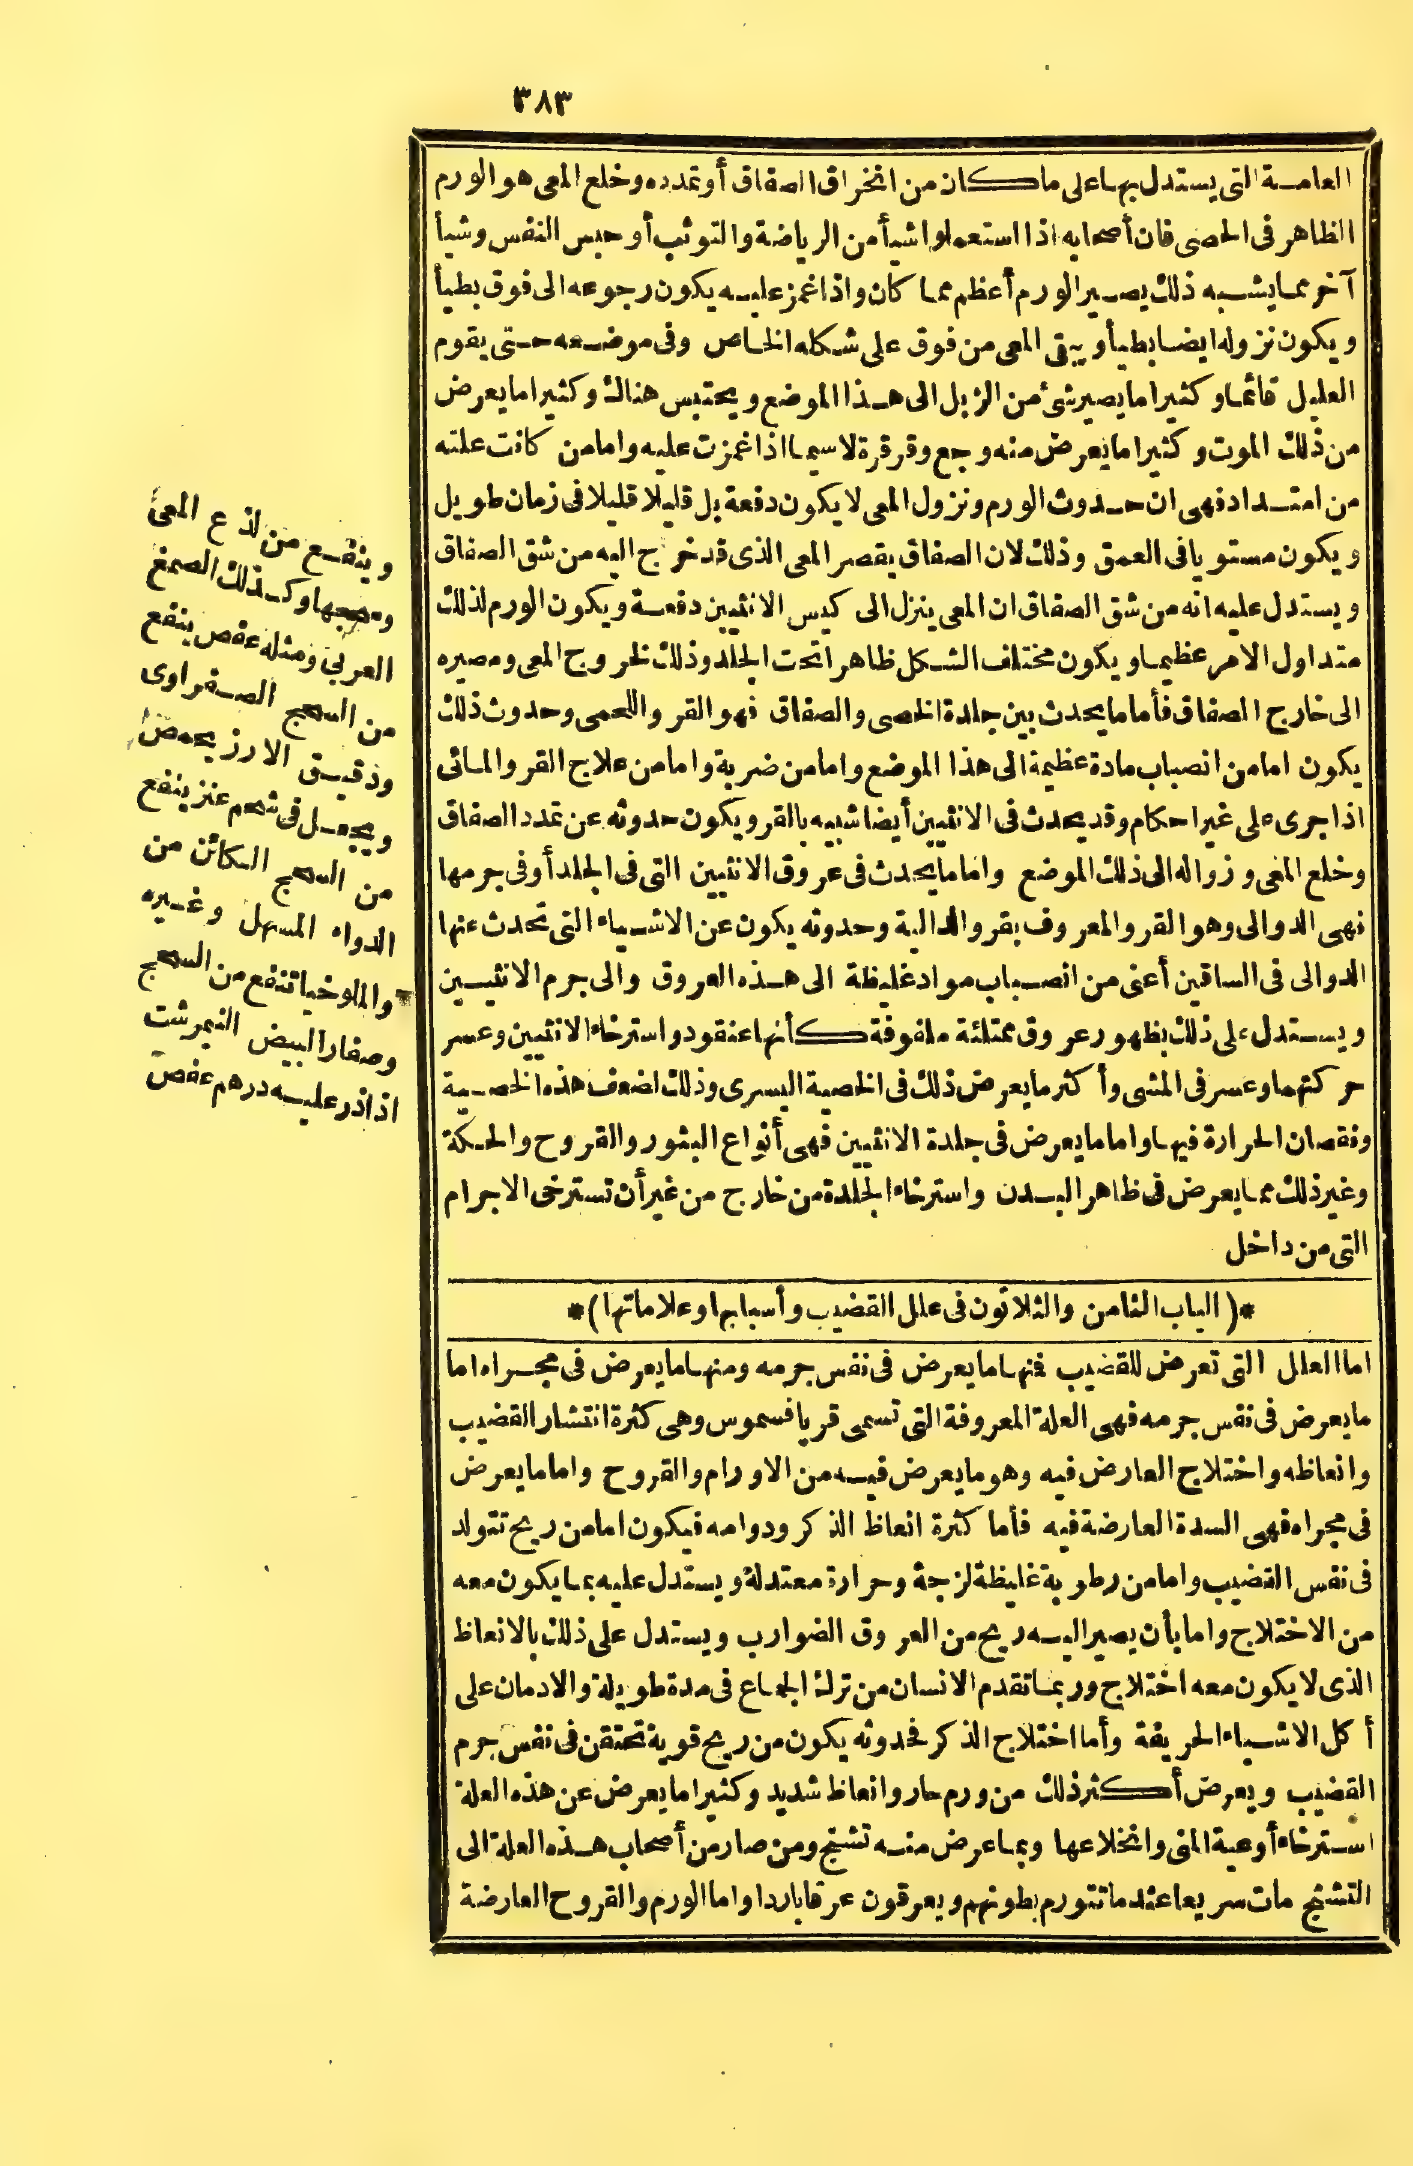 ٣٨٣
العامة التى يستدل بها على ما كان من انخراق الصفاق أو تمدده وخلع المعى هو الورم
الظاهر فى الخصى فان أصحابه اذا استعملوا شيأ من الرياضة والتوثب أو حبس النفس وشيأ
آخر مما يشبه ذلك يصير الورم أعظم مما كان واذا غمز عليه يكون رجوعه الى فوق بطيأ
ويكون نزوله ايضا بطيأ ويبقى المعى من فوق على شكله الخاص وفى موضعه حتى يقوم
العليل قائما وكثيرا ما يصير شئ من الزبل الى هذا الموضع ويحتبس هناك وكثيرا ما يعرض
من ذلك الموت وكثيرا ما يعرض منه وجع وقرقرة لاسيما اذا غمزت عليه وامامن كانت علته
من امتداد فهى ان حدوث الورم ونزول المعى لا يكون دفعة بل قليلا قليلا فى زمان طويل
ويكون مستويا فى العمق وذلك لان الصفاق يقصر المعى الذى قد خرج اليه من شق الصفاق
ويستدل عليه انه من شق الصفاق ان المعى ينزل الى كيس الانثيين دفعة ويكون الورم لذلك
متداول الامر عظيما ويكون مختلف الشكل ظاهرا تحت الجلد وذلك لخروج المعى ومصيره
الى خارج الصفاق فأما ما يحدث بين جلدة الخصى والصفاق فهو القرو اللحمى وحدوث ذلك
يكون امامن انصباب مادة عظيمة الى هذا الموضع وامامن ضربة وامامن علاج القرو المائى
اذا جرى على غير احكام وقد يحدث فى الانثيين أيضا شبيه بالقرو يكون حدوثه عن تمدد الصفاق
وخلع المعى وزواله الى ذلك الموضع واما ما يحدث فى عروق الانثيين التى فى الجلد أو فى جرمها
فهى الدوالى وهو القرو المعروف بقرو الدالية وحدوثه يكون عن الاشياء التى تحدث عنها
الدوالى فى الساقين أعنى من انصباب مواد غليظة الى هذه العروق والى جرم الانثيين
ويستدل على ذلك بظهور عروق ممتلئة ملفوفة كأنها عنقود واسترخاء الانثيين وعسر
حركتهما وعسر فى المشى وأكثر ما يعرض ذلك فى الخصية اليسرى وذلك لضعف هذه الخصية
ونقصان الحرارة فيها واما ما يعرض فى جلدة الانثيين فهى أنواع البثور والقروح والحكة
وغير ذلك مما يعرض فى ظاهر البدن واسترخاء الجلدة من خارج من غير أن تسترخى الاجرام
التى من داخل
*(الباب الثامن والثلاثون فى علل القضيب وأسبابها وعلاماتها)*
اما العلل التى تعرض للقضيب فنها ما يعرض فى نفس جرمه ومنها ما يعرض فى مجراه اما
ما يعرض فى نفس جرمه فهى العلة المعروفة التى تسمى قريافسموس وهى كثرة انتشار القضيب
وانعاظه واختلاج العارض فيه وهو ما يعرض فيه من الاورام والقروح واما ما يعرض
فى مجراه فهى السدة العارضة فيه فأما كثرة انعاظ الذكر ودوامه فيكون امامن ريح تتولد
فى نفس القضيب وامامن رطوبة غليظة لزجة وحرارة معتدلة ويستدل عليه بما يكون معه
من الاختلاج واما بأن يصير اليه ريح من العروق الضوارب ويستدل على ذلك بالانعاظ
الذى لا يكون معه اختلاج وربما تقدم الانسان من ترك الجماع فى مدة طويلة والادمان على
أكل الاشياء الحريفة وأما اختلاج الذكر فحدوثه يكون من ريح قوية تحتقن فى نفس جرم
القضيب ويعرض أكثر ذلك من ورم حار وانعاظ شديد وكثيرا ما يعرض عن هذه العلة
استرخاء أوعية المنى وانخلاعها وبما عرض منه تشنج ومن صار من أصحاب هذه العلة الى
التشنج مات سريعا عندما تتورم بطونهم ويعرقون عرقا باردا واما الورم والقروح العارضة
وينفع من لذع المعى
وسحجها وكذلك الصمغ
العربى ومثله عفص ينفع
من السحج الصفراوى
ودقيق الارز يحمص
ويجعل فى شحم عنز ينفع
من السحج الكائن من
الدواء المسهل وغيره
والملوخيا تنفع من السحج
وصفار البيض النيمرشت
اذا ذر عليه درهم عفص